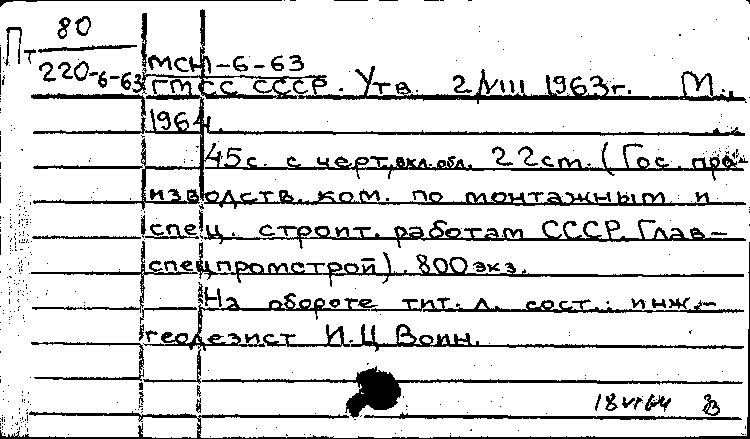 Пт 80
220-6-63
МСН-6-63
ГМСС СССР. Утв. 2/VIII 1963г. М.,
1964.
45с. с черт, вкл. обл. 22см. (Гос. про-
изводств. ком. по монтажным и
спец. строит. работам СССР. Глав-
спецпромстрой). 800 экз.
На обороте тит. л. сост.: инж.-
геодезист И.Ц Воин.
18 VI 64